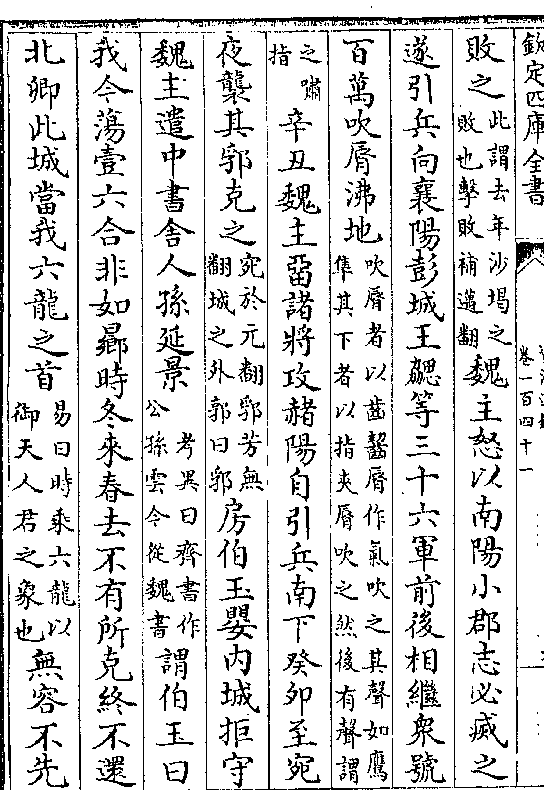 欽定四庫全書
卷一百四十一
敗之此謂去年沙堨之敗也擊敗補邁翻魏主怒以南陽小郡志必滅之
遂引兵向襄陽彭城王勰等三十六軍前後相繼衆號
百萬吹脣沸地吹脣者以齒齧脣作氣吹之其聲如鷹隼其下者以指夾脣吹之然後有聲謂
之嘯指辛丑魏主畱諸將攻赭陽自引兵南下癸卯至宛
夜襲其郛克之宛於元翻郛芳無翻城之外郭曰郛房伯玉嬰内城拒守
魏主遣中書舍人孫延景考異曰齊書作公孫雲今從魏書謂伯玉曰
我今蕩壹六合非如曏時冬來春去不有所克終不還
北卿此城當我六龍之首易曰時乘六龍以御天人君之象也無容不先